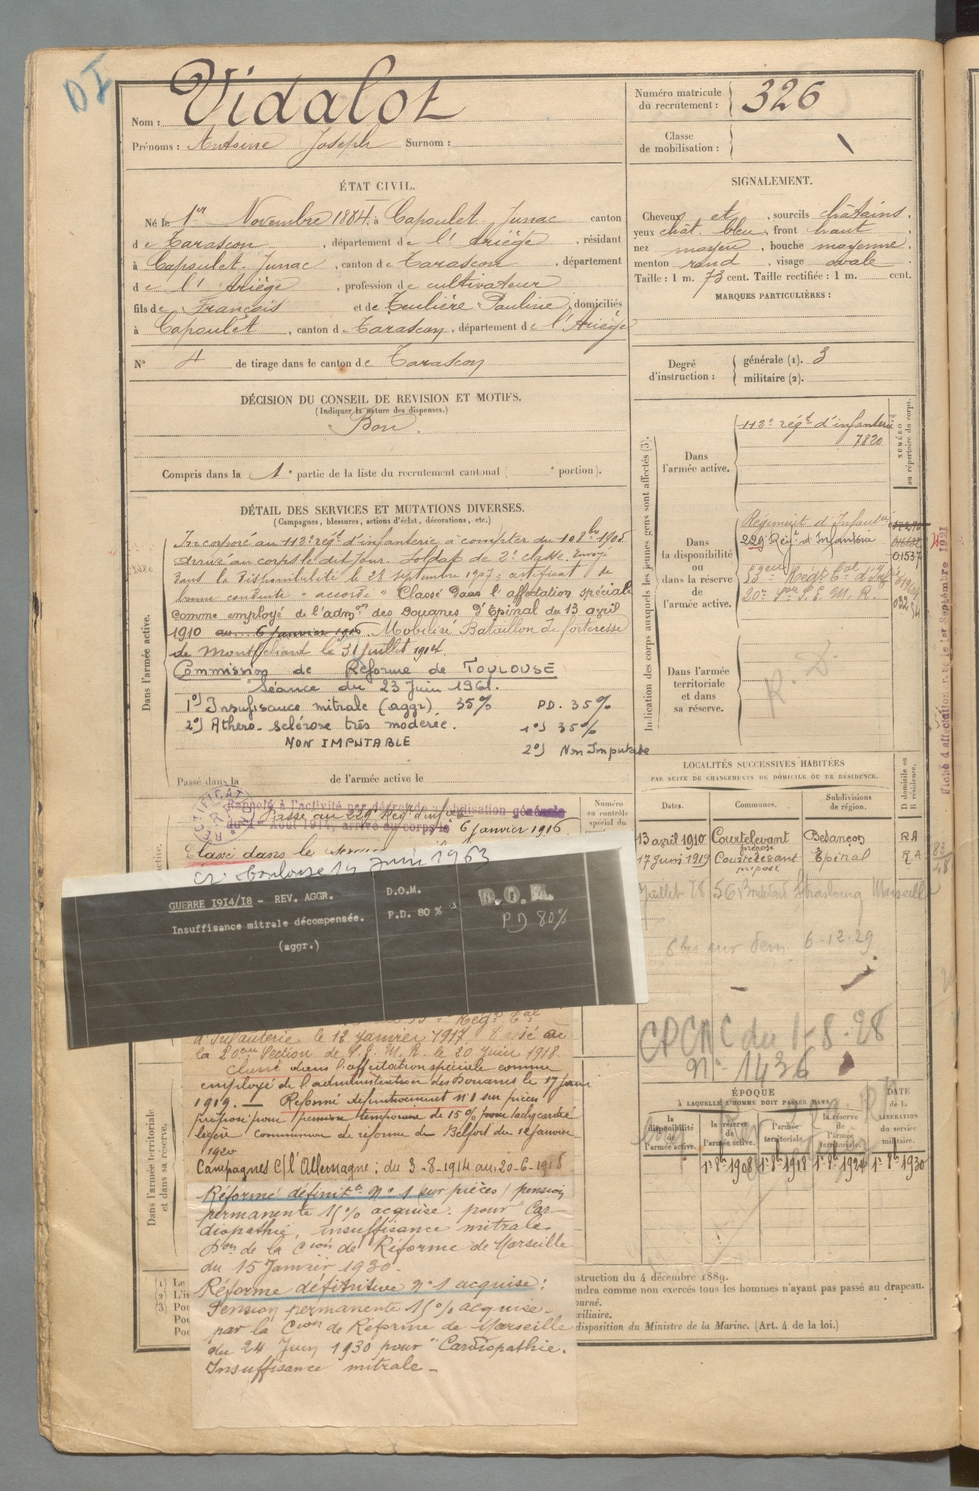 DI
Nom : Vidalot
Prénoms : Antoine Joseph Surnom :
Numéro matricule du recrutement : 326
Classe de mobilisation :
ÉTAT CIVIL.
Né le 1er Novembre 1884, à Capoulet Junac canton
de Tarascon, département de l'Ariège, résidant
à Capoulet-Junac, canton de Tarascon, département
de l'Ariège, profession de cultivateur
fils de François et de Teulière Pauline, domiciliés
à Capoulet, canton de Tarascon, département de l'Ariège
N° 4 de tirage dans le canton de Tarascon
SIGNALEMENT.
Cheveux et, sourcils châtains,
yeux chat. bleu, front haut
nez moyen, bouche moyenne,
menton rond, visage ovale
Taille : 1 m. 73 cent. Taille rectifiée : 1 m. cent.
MARQUES PARTICULIÈRES :
Degré d'instruction : générale (1). 3
militaire (2).
DÉCISION DU CONSEIL DE REVISION ET MOTIFS.
(Indiquer la nature des dispenses.)
Bon.
Compris dans la 1e partie de la liste du recrutement cantonal ( e portion).
DÉTAIL DES SERVICES ET MUTATIONS DIVERSES.
(Campagnes, blessures, actions d'éclat, décorations, etc.)
Dans l'armée active.
Incorporé au 112e régt d'infanterie à compter du 10 8bre 1905
arrivé au corps le dit jour. Soldat de 2e classe. Envoyé
dans la disponibilité le 28 septembre 1907; certificat de
bonne conduite "accordé" Classé dans l'affectation spéciale
comme employé de l'admon des Douanes d'Epinal du 13 avril
1910 au 6 janvier 1916. Mobilisé Bataillon de forteresse
de Montbéliard le 31 juillet 1914.
Commission de Réforme de TOULOUSE
Séance du 23 Juin 1961.
1°) Insufisance mitrale (aggr) 35% PD. 35%
2°) Athero-sclérose très modérée. 1°) 35%
NON IMPUTABLE 2°) Non Imputable
Passé dans la de l'armée active le
Rappelé à l'activité par décret de mobilisation générale
du 1er Août 1914, arrivé au corps le
Passé au 229e Régt d'inf 6 janvier 1916
Classé dans le
Numéro au contrôle spécial du
Toulouse 14 Juin 1963
GUERRE 1914/18 - REV. AGGR.
Insuffisance mitrale décompensée.
(aggr.)
D.O.M.
P.D. 80 %
D.O.M.
PD 80%
d'Infanterie le 12 janvier 1917. Passé à
la 20ème Section de S.E.M.R. le 20 Juin 1918.
Classé dans l'affectation spéciale comme
employé de l'administration des Douanes le 17 juin
1919. Réformé définitivement n° 1 sur pièces
proposé pour pension temporaire de 15% pour tachycardie
légère commission de réforme de Belfort du 12 janvier
1920
Campagnes C/ l'Allemagne : du 3-8-1914 au 20-6-1918
Dans l'armée territoriale et dans sa réserve.
Réformé définitt n° 1 sur pièces / pension
permanente 15% acquise. pour Car-
diopathie, insuffisance mitrale.
Don de la Cion de Réforme de Marseille
du 15 Janvier 1930.
Réforme définitive n° 1 acquise :
Pension permanente 15% acquise.
par la Cion de Réforme de Marseille
du 24 Juin 1930 pour "Cardiopathie.
Insuffisance mitrale -
Indication des corps auxquels les jeunes gens sont affectés (3).
NUMÉRO au répertoire du corps.
Dans l'armée active.
112e régt d'infanterie
7820
Dans la disponibilité ou dans la réserve de l'armée active.
Régiment d'Infanterie
229 Régt d'Infanterie
01537
20e S.E.M.R.
Dans l'armée territoriale et dans sa réserve.
R.D.
LOCALITÉS SUCCESSIVES HABITÉES
PAR SUITE DE CHANGEMENTS DE DOMICILE OU DE RÉSIDENCE.
Dates. Communes. Subdivisions de région. D domicile ou R résidence.
13 avril 1910 Courtelevant préposé Besançon RA
17 Juin 1919 Courtelevant préposé Epinal RA
Juillet 28 56 Boulevard Strasbourg Marseille
6-12-29
CPCAC du 1-8-28
N° 1436
ÉPOQUE
À LAQUELLE L'HOMME DOIT PASSER DANS
la disponibilité de l'armée active. la réserve de l'armée active. l'armée territoriale. la réserve de l'armée territoriale. DATE de la LIBÉRATION du service militaire.
1er 8bre 1908 1er 8bre 1918 1er 8bre 1924 1er 8bre 1930
(1) Le
(2) L'in
(3) Pou
Pou
struction du 4 décembre 1889.
ndra comme non exercés tous les hommes n'ayant pas passé au drapeau.
ourné.
xiliaire.
disposition du Ministre de la Marine. (Art. 4 de la loi.)